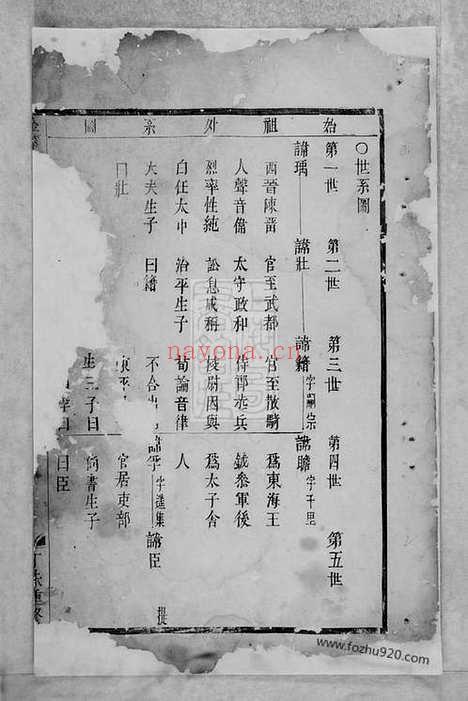 始祖外系圖
○世系圖
第一世 第二世 第三世 第四世 第五世
諱瑀 諱壯 諱籍字嗣宗 諱瞻字千里
西晉陳 官至武都 官至散騎 爲東海王
人聲音 太守政和 侍郎 兵 鉞叅軍後
率性純 訟息咸稱 尉因與 爲太子舍
白任太中 治平生子 荀論音律 人
大夫生子 曰籍 不合 諱孚字遙集 諱臣
曰壯 官居吏部
生 子曰 尚書生子
曰 曰臣
丁 重修
nayona.cn
www.fozhu920.com